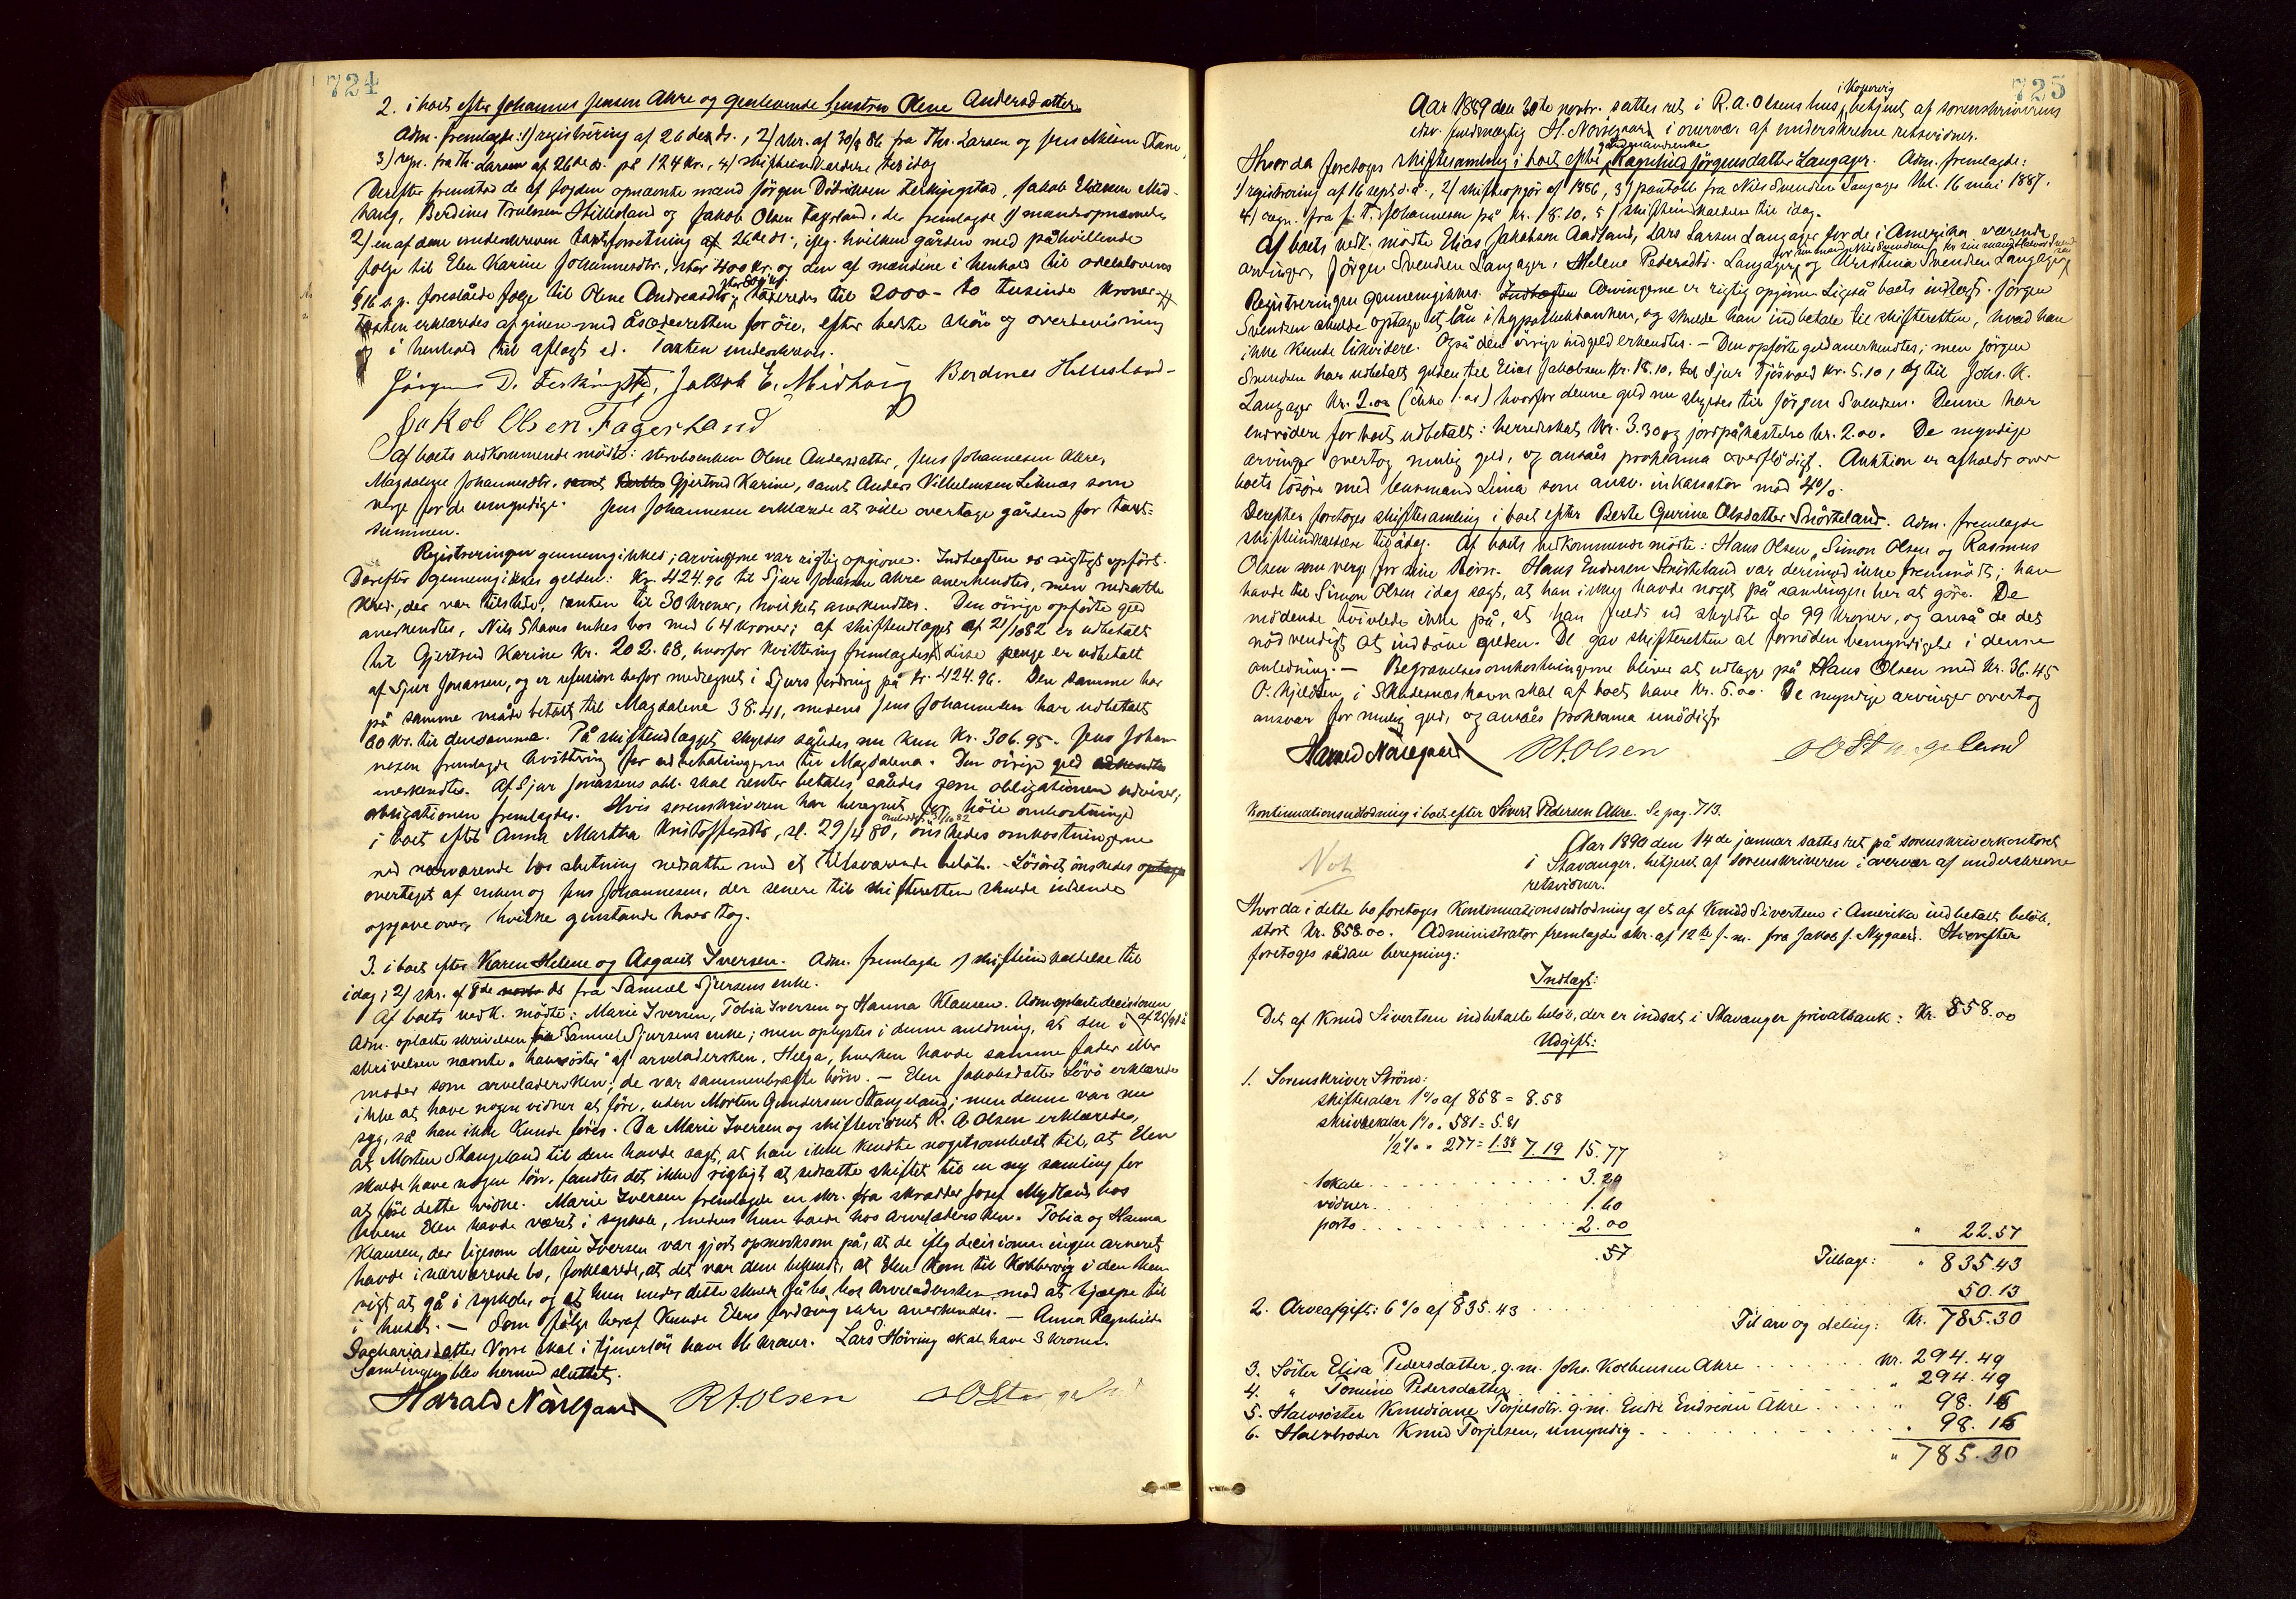 724
2. i boet efter Johannes Jensen Ahre og genlevende hustru Olene Andersdatter.
Adm. fremlagde: 1) registrering af 26de ds., 2) skr. af 30/9 86 fra Thr. Larsen og Jens
3) regn. fra Th. Larsen af 26de ds. på 124 kr., 4) skifteindkaldelse til idag
Derefter fremstod de af fogden opnævnte mænd Jörgen Didriksen Ferkingstad, Jakob Eliasen Mid-
haug, Berdines Trulssen Hillesland og Jakob Olsen Fagerland, der fremlagde 1) mandsopnævnelse
2) en af dem underskreven taxtforretning af 26de ds., ifölge hvilken gården med påhvilende
folge til Elen Karine Johannesdtr., stor 400 kr. og den af mændene i henhold til odelslovens
§ 16 s.p. foreslåede folge til Olene Andreasdtr. takseredes til 2000 - to tusinde kroner
Taxten erklæredes afgiven med åsædesretten for öie, efter bedste skjön og overbevisning
og i henhold til aflagt ed. Taxten underskreves.
Jörgen D. Ferkingstad, Jakob E. Midhaug Berdines Hillesland
Jakob Olsen Fagerland
Af boets vedkommende mödte: sterboenken Olene Andersdatter, Jens Johannesen Ahre,
Magdalene Johannesdtr. samt Gjertrud Karine, samt Anders Vilhelmsen Liknæs som
verge for de umyndige. Jens Johannesen erklærede at ville overtage gården for taxt-
summen.
Registreringen gennemgikkes; arvingerne var rigtig opgivne. Indtægten er rigtigt opfört.
Derefter gennemgikkes gelden: Kr. 424.96 til Sjur Jonassen Ahre anerkendtes, men nedsatte
kred., der var tilstede, renten til 30 kroner, hvilket anerkendtes. Den övrige opförte geld
anerkendtes, Nils Stavas enkes bos med 64 kroner; af skifteudlægget af 21/10 82 er udbetalt
til Gjertrud Karine Kr. 202.68, hvorfor kvittering fremlagdes; disse penge er udbetalt
af Sjur Jonassen, og er refusion herfor medregnet i Sjurs fordring på kr. 424.96. Den samme har
på samme måde betalt til Magdalene 38.41, medens Jens Johannesen har udbetalt
60 kr. til densamme. På skifteudlægget skyldes således nu kun Kr. 306.95. Jens Johan-
nesen fremlagde kvittering for udbetalingerne til Magdalena. Den övrige geld
anerkendtes. Af Sjur Jonassens obl. skal renter betales, således som obligationen udviser;
obligationen fremlagdes. Hvis sorenskriveren har beregnet for höie omkostninger
i boet efter Anna Martha Kristoffersdtr, sl. 29/4 80, önskedes omkostningerne
ved nærværende bos slutning nedsatte med et tilsvarende belöb. - Lösöret önskedes
overtaget af enken og Jens Johannesen, der senere til skifteretten skulde indsende
opgave over, hvilke genstande hver tog.
3. i boet efter Karen Helene og Asgaut Iversen. Adm. fremlagde 1) skifteindkaldelse til
idag; 2) skr. af 8de ds fra Samuel Sjursens enke.
Af boets vedk. mödte: Marie Iversen, Tobia Iversen og Hanna Klausen. Adm oplæste decisionen af 25/9 d.å
Adm. oplæste skrivelsen fra Samuel Sjursens enke; men oplystes i denne anledning, at den i
skrivelsen nævnte "halvsöster" af arveladersken, Helga, hverken havde samme fader eller
moder som arveladersken; de var sammenbragte börn. - Elen Jakobsdatter Lövö erklærede
ikke at have nogen vidner at före, uden Morten Gundersen Stangeland; men denne var nu
syg, så han ikke kunde föres. Da Marie Iversen og skiftevidnet R. A Olsen erklærede,
at Morten Stangeland til dem havde sagt, at han ikke kendte nogetsomhelst til, at Elen
skulde have nogen lön, fandtes det ikke rigtigt at udsætte skiftet til en ny samling for
at före dette vidne. Marie Iversen fremlagde en skr. fra skrædder Josef Mydland, hos
hvem Elen havde været i syskole, medens hun boede hos arveladersken. Tobia og Hanna
Klausen, der ligesom Marie Iversen var gjort opmerksom på, at de iflg decisionen ingen arveret
havde i nærværende bo, forklarede, at det var dem bekendt, at Elen kom til Kobbervig i den hen-
sigt at gå i syskole, og at hun under dette skulde få bo hos arveladersken mod at hjælpe til
i huset. - Som fölge heraf kunde Elens fordring ikke anerkendes. - Anna Ragnhilde
Sachariasdatter Vorre skal i tjenerlön have 16 kroner. Lars Höining skal have 3 kroner.
Samlingen blev hermed sluttet.
Harald Nörregaard RAOlsen
725
Aar 1889 den 30te novbr. sattes ret i R. A. Olsens hus i Kopervig betjent af sorenskriverens
edsv. fuldmægtig H. Nörregaard i overvær af underskrevne retsvidner.
Hvorda foretoges skiftesamling i boet efter gaardmandsenke Ragnhild Jörgensdatter Langager. Adm. fremlagde:
1) registrering af 16 sept. d.å., 2) skifteopgör af 1886, 3) pantobl. fra Nils Svendsen Langager thl. 16 mai 1887,
4) regn. fra J. T. Johannesen på kr. 18.10, 5) skifteindkaldelse til idag.
Af boets vedk. mödte Elias Jakobsen Aadland, Lars Larsen Langager for de i Amerika værende
arvinger, Jörgen Svendsen Langager, Helene Pedersdtr. Langager for sin mand Nils Svendsen og Kristina Svendsen Langager
Registreringen gennemgikkes. Arvingerne er rigtig opgivne. Ligeså boets indtægt. Jörgen
Svendsen skulde optage et lån i hypothekbanken, og skulde han indbetale til skifteretten, hvad han
ikke kunde likvidere. Også den övrige indgeld erkendtes. - Den opförte geld anerkendtes; men Jörgen
Svendsen har udbetalt gelden til Elias Jakobsen Kr. 18.10, til Sjur Tjösvold kr. 5.10, og til Johs. K.
Langager kr. 2.00 (ikke 1.00) hvorfor denne geld nu skyldes til Jörgen Svendsen. Denne har
endvidere for boet udbetalt: herredskat kr. 3.30 og jordpåkastelse kr. 2.00. De myndige
arvinger overtog mulig geld, og ansåes proklama overflödigt. Auktion er afholdt over
boets lösöre med lensmand Lima som ansv. inkassator mod 4%.
Derefter foretoges skiftesamling i boet efter Berte Gurine Olsdatter Snörteland. Adm. fremlagde
skifteindkaldelse til idag. Af boets vedkommende mödte: Hans Olsen, Simon Olsen og Rasmus
Olsen som verge for sine börn. Hans Endresen Snörteland var derimod ikke fremmödt; han
havde til Simon Olsen idag sagt, at han ikke havde noget på samlingen her at göre. De
mödende tvivlede ikke på, at han fuldt ud skyldte de 99 kroner, og anså de det
nödvendigt at inddrive gelden. De gav skifteretten al fornöden bemyndigelse i denne
anledning. - Begravelsesomkostningerne bliver at udlægge på Hans Olsen med kr. 36.45
O. Kjeldsen i Skudesneshavn skal af boet have kr. 5.00. De myndige arvinger overtog
ansvar for mulig geld, og ansåes proklama unödigt.
Harald Nörregaard RAOlsen
Kontinuationsudlodning i boet efter Sivert Pedersen Ahre. Se pag. 713.
Aar 1890 den 14de januar sattes ret på sorenskriverkontoret
Not
i Stavanger, betjent af sorenskriveren i overvær af underskrevne
retsvidner.
Hvorda i dette bo foretoges kontinuationsudlodning af et af Knud Sivertsen i Amerika indbetalt belöb,
stort kr. 858.00. Administrator fremlagde skr. af 12te f. m. fra Jakob J. Nygaard. Hvorefter
foretoges sådan beregning:
Indtægt:
Det af Knud Sivertsen indbetalte belöb, der er indsat i Stavanger privatbank: Kr. 858.00
Udgift:
1. Sorenskriver Ström:
skiftesalær 1% af 858 = 8.58
skriversalær 1% " 581 = 5.81
1/2% " 277 = 1.38 7.19 15.77
lokale 3.20
vidner 1.60
porto 2.00 " 22.57
57 Tilbage: " 835.43
2. Arveafgift: 6% af 835.43 50.13
Til arv og deling: Kr. 785.30
3. Söster Elisa Pedersdatter, g. m. Johs. Kolbensen Ahre kr. 294.49
4. " Tomine Pedersdatter " 294.49
5. Halvsöster Knudiane Torjersdtr. g. m. Endre Endresen Ahre " 98.16
6. Halvbroder Knud Torjersen, umyndig " 98.16
" 785.30